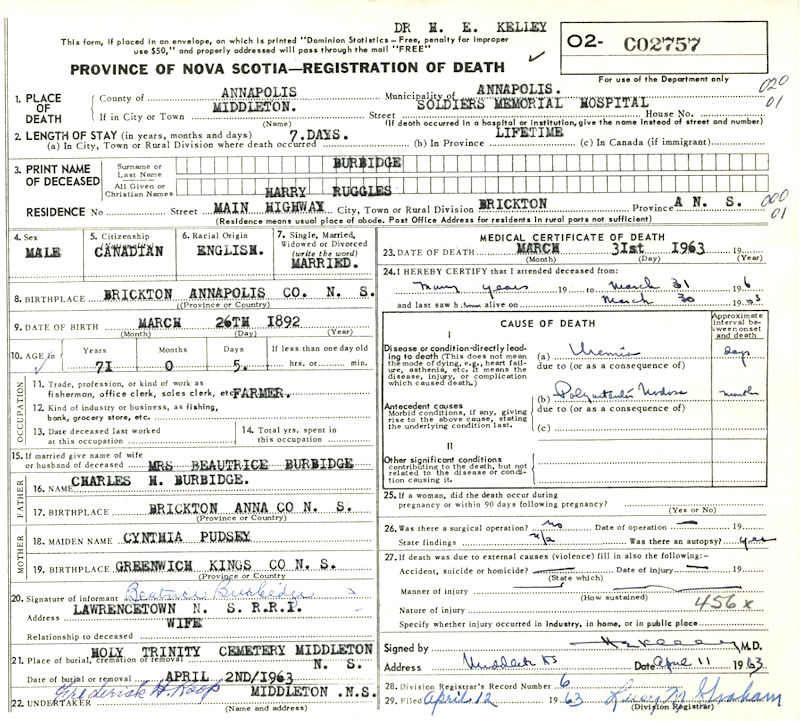 DR H. E. KELLEY
This form, if placed in an envelope, on which is printed "Dominion Statistics - Free, penalty for improper
use $50," and properly addressed will pass through the mail "FREE"
02- C02757
For use of the Department only
PROVINCE OF NOVA SCOTIA—REGISTRATION OF DEATH
020
01
1. PLACE OF DEATH
County of ANNAPOLIS Municipality of ANNAPOLIS.
If in City or Town MIDDLETON. Street SOLDIERS MEMORIAL HOSPITAL House No.
(Name) (If death occurred in a hospital or institution, give the name instead of street and number)
2. LENGTH OF STAY (in years, months and days)
(a) In City, Town or Rural Division where death occurred 7.DAYS. (b) In Province LIFETIME (c) In Canada (if immigrant)
3. PRINT NAME OF DECEASED
Surname or Last Name BURBIDGE
All Given or Christian Names HARRY RUGGLES
RESIDENCE No Street MAIN HIGHWAY City, Town or Rural Division BRICKTON Province A N. S.
000
01
(Residence means usual place of abode. Post Office Address for residents in rural parts not sufficient)
4. Sex MALE
5. Citizenship (Nationality) CANADIAN
6. Racial Origin ENGLISH.
7. Single, Married, Widowed or Divorced (write the word) MARRIED.
8. BIRTHPLACE BRICKTON ANNAPOLIS CO. N. S.
(Province or Country)
9. DATE OF BIRTH MARCH 26TH 1892
(Month) (Day) (Year)
10. AGE in Years Months Days If less than one day old
71 0 5. hrs. or min.
OCCUPATION
11. Trade, profession, or kind of work as
fisherman, office clerk, sales clerk, etc FARMER.
12. Kind of industry or business, as fishing,
bank, grocery store, etc.
13. Date deceased last worked
at this occupation
14. Total yrs. spent in
this occupation
15. If married give name of wife
or husband of deceased MRS BEAUTRICE BURBIDGE
FATHER
16. NAME CHARLES H. BURBIDGE.
17. BIRTHPLACE BRICKTON ANNA CO N. S.
(Province or Country)
MOTHER
18. MAIDEN NAME CYNTHIA PUDSEY
19. BIRTHPLACE GREENWICH KINGS CO N.S.
(Province or Country)
20. Signature of informant Beatrice Burbidge
Address LAWRENCETOWN N. S. R.R.P.
Relationship to deceased WIFE
21. Place of burial, cremation or removal HOLY TRINITY CEMETERY MIDDLETON
N. S.
Date of burial or removal APRIL 2ND/1963
22. UNDERTAKER Frederick H. Roop MIDDLETON .N.S.
(Name and address)
MEDICAL CERTIFICATE OF DEATH
23. DATE OF DEATH MARCH 31st 1963 19
(Month) (Day) (Year)
24. I HEREBY CERTIFY that I attended deceased from:
Many years 19 to March 31 196
and last saw h alive on March 30 1963
CAUSE OF DEATH
Approximate interval between onset and death
I
Disease or condition directly leading to death (This does not mean the mode of dying, e.g., heart failure, asthenia, etc. It means the disease, injury, or complication which caused death.)
(a) Uremia days
due to (or as a consequence of)
Antecedent causes
Morbid conditions, if any, giving rise to the above cause, stating the underlying condition last.
(b) Polyarteritis Nodosa months
due to (or as a consequence of)
(c)
II
Other significant conditions
contributing to the death, but not related to the disease or condition causing it.
25. If a woman, did the death occur during
pregnancy or within 90 days following pregnancy?
(Yes or No)
26. Was there a surgical operation? no Date of operation — 19
State findings n/a Was there an autopsy? yes
27. If death was due to external causes (violence) fill in also the following:—
Accident, suicide or homicide? Date of injury — 19
(State which)
Manner of injury
(How sustained)
Nature of injury 456x
Specify whether injury occurred in industry, in home, or in public place
Signed by H E Kelley M.D.
Address Middleton NS Date April 11 1963
28. Division Registrar's Record Number 6
29. Filed April 12 1963 Graham
(Division Registrar)